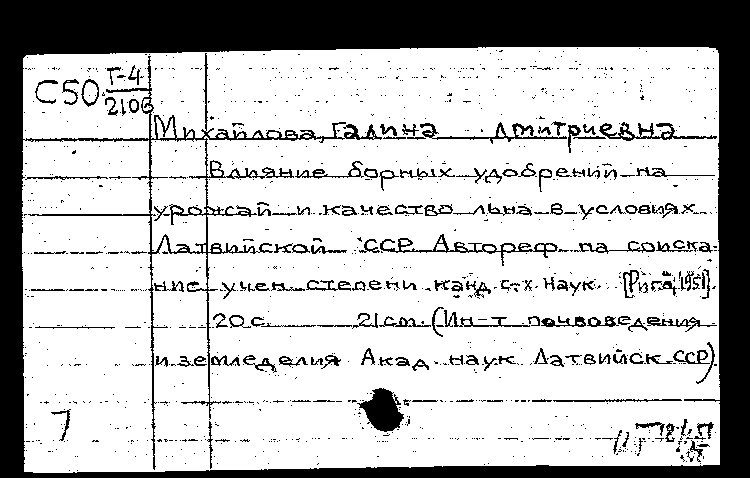 С50 Г-4
2106
Михайлова, Галина Дмитриевна
Влияние борных удобрений на
урожай и качество льна в условиях
Латвийской ССР. Автореф. на соиска-
ние учен. степени канд. с.-х. наук. [Рига, 1951].
20 с. 21 см. (Ин-т почвоведения
и земледелия Акад. наук Латвийск. ССР)